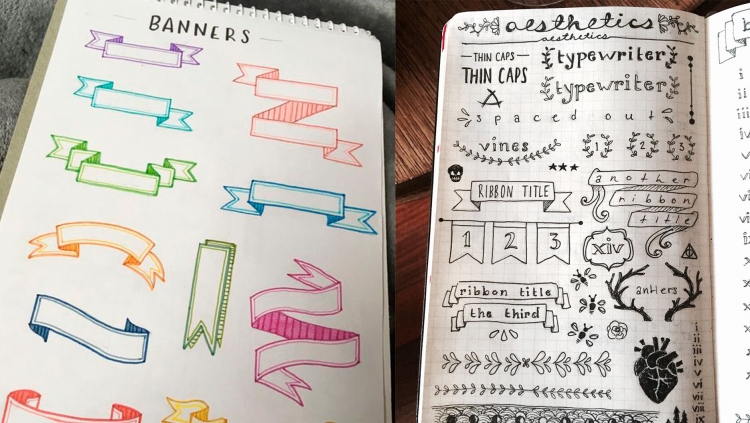 BANNERS
aesthetics
aesthetics
THIN CAPS
THIN CAPS
typewriter
typewriter
spaced out
vines
1 2 3
RIBBON TITLE
another
ribbon
title
1 2 3
xiv
ribbon title
the third
antlers
i
ii
iii
iv
v
vi
vii
viii
ix